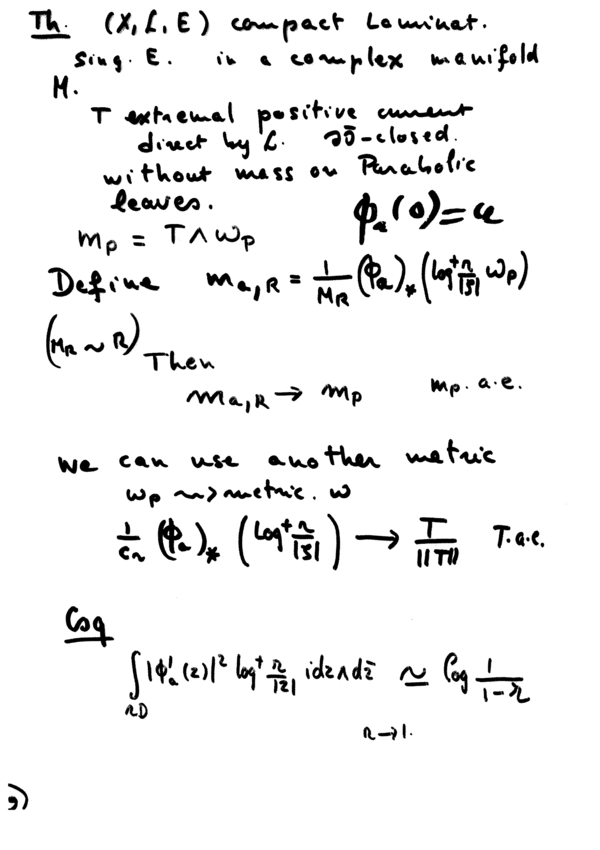 Th. (X, L, E) compact Laminat.
sing. E. in a complex manifold
M.
T extremal positive current
direct by L. ∂∂̄-closed.
without mass on Parabolic
leaves.
ϕₐ(0)=a
m_P = T∧ω_P
Define m_{a,R} = 1/M_R (ϕₐ)_* (log⁺ r/|ζ| ω_P)
(M_R ~ R)
Then
m_{a,R} → m_P m_P. a.e.
we can use another metric
ω_P ⇝ metric. ω
1/c_r (ϕₐ)_* (log⁺ r/|ζ|) → T/||T|| T. a.e.
Coq
∫_{rD} |ϕ'ₐ(z)|² log⁺ r/|z| idz∧dz̄ ≃ log 1/(1-r)
r→1.